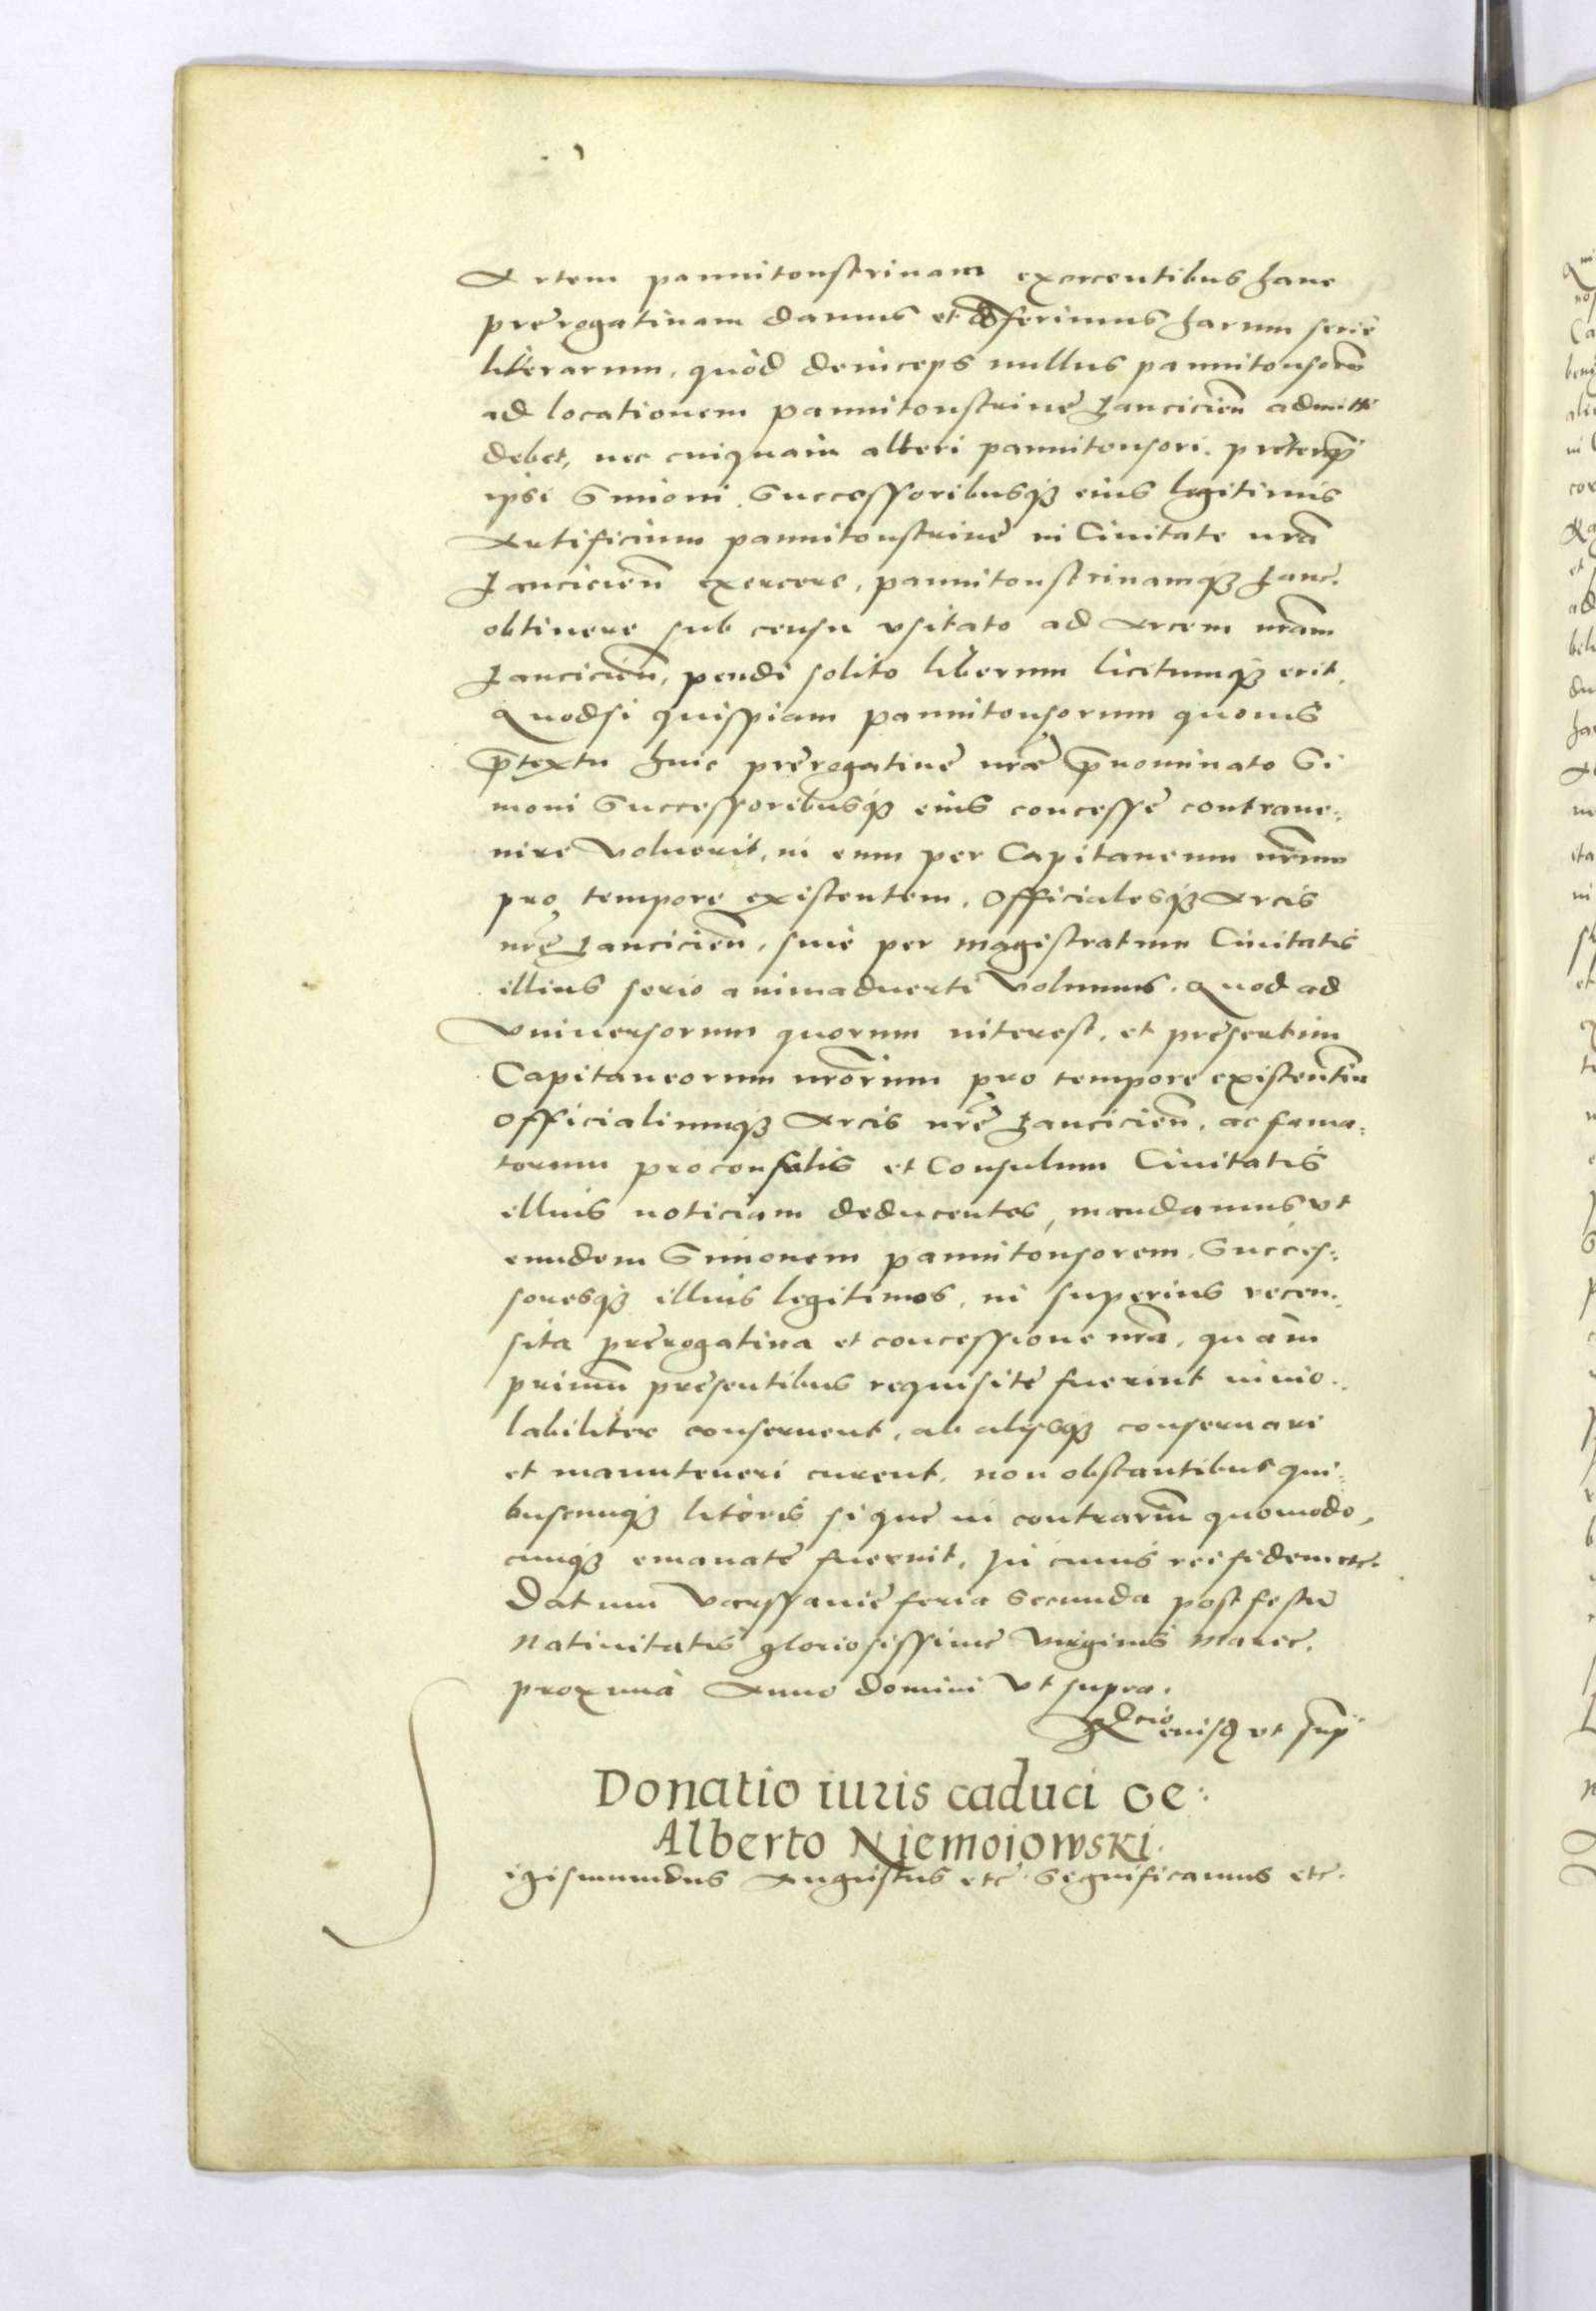 Artem pannitonstrinam exercentibus hanc
prerogatiuam damus et cōferimus harum serie
literarum, quòd deinceps nullus pannitonsorū
ad locationem pannitonstrinę Lancicień admitti
debet, nec cuiquam alteri pannitonsori, preterq̃
ipsi Simoni Successoribusq; eius legitimis
Artificium pannitonstrinę in Ciuitate nrã
Lancicień exercere, pannitonstrinamq; hanc
obtinere sub censu vsitato ad Arcem nrãm
Lancicień, pendi solito liberum licitumq; erit.
Quodsi quispiam pannitonsorum quouis
p̃textu huic prerogatiuę nrãe p̃nominato Si
moni Successoribusq; eius concessę contraue:
nire voluerit, in eum per Capitaneum nrũm
pro tempore existentem, Officialesq; Arcis
nrẽ Lancicień, siue per magistratum Ciuitatis
illius serio animaduerti volumus. Quod ad
vniuersorum quorum interest, et presertim
Capitaneorum nrõrum pro tempore existentiũ
Officialiumq; Arcis nrẽ Lancicień, ac fama:
torum proconsulis et Consulum Ciuitatis
illius noticiam deducentes, mandamus vt
eundem Simonem pannitonsorem, Succes:
soresq; illius legitimos, in superius recen:
sita prerogatiua et concessione nrã, quàm
primũ presentibus requisiti fuerint inuio:
labiliter conseruent, ab alijsq; conseruari
et manuteneri curent, non obstantibus qui:
buscunq; literis si quę in contrariũ quomodo,
cunq; emanatę fuerint. In cuius rei fidem etc.
Datum Varssauię feria Secunda post festũ
Natiuitatis gloriosissimę virginis Marię
proxima Anno domini vt supra.
Rela͠cio eiusd vt sup̃
Donatio iuris caduci Ge:
Alberto Niemoiowski.
Sigismundus Augustus etc. Significamus etc.